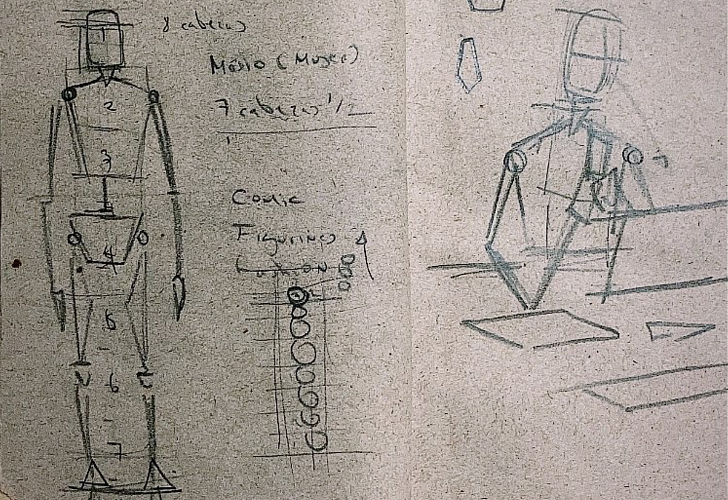 8 cabezas
(Mujer)
7 cabezas 1/2
Comic
Figurines
1
2
3
4
5
6
7